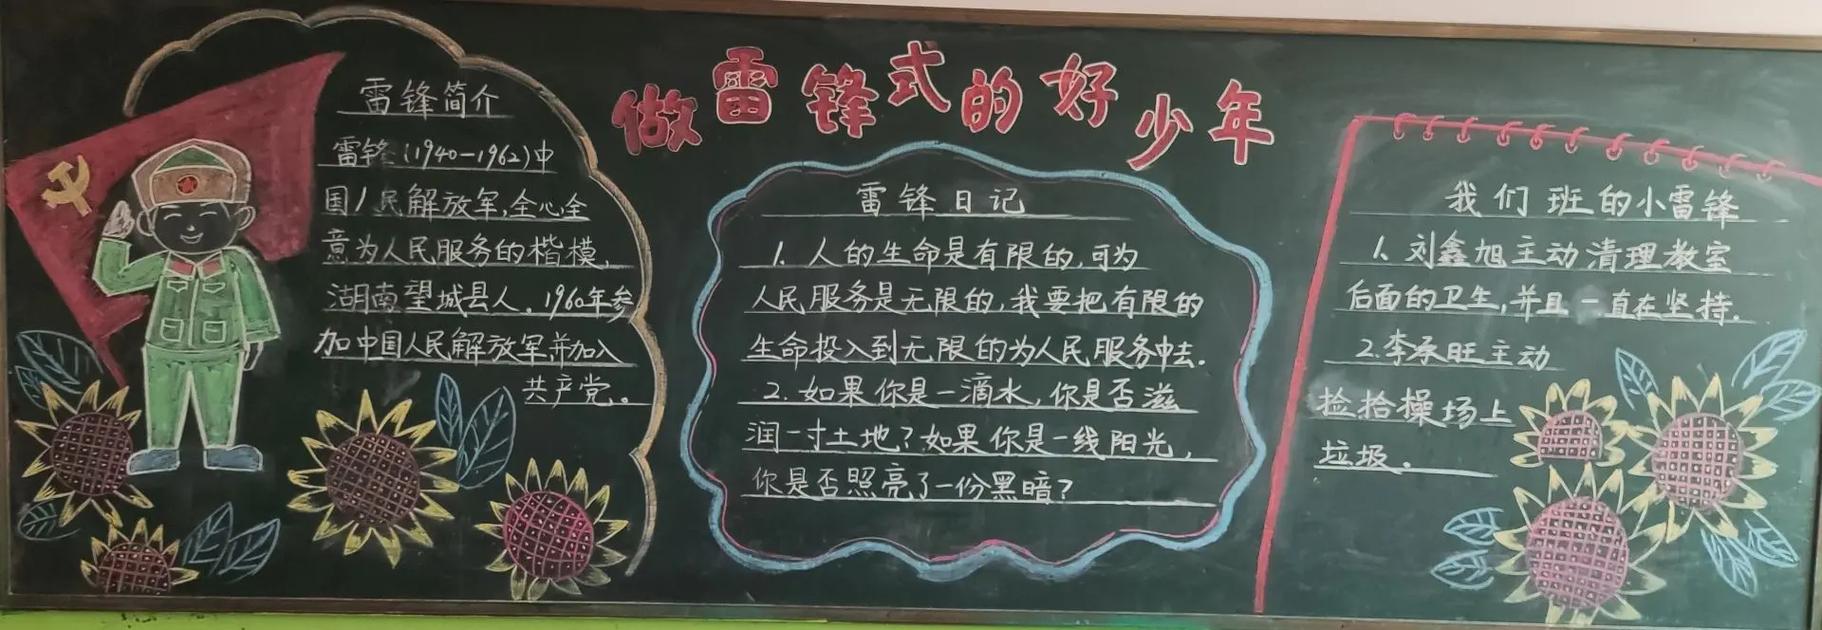 做雷锋式的好少年
雷锋简介
雷锋(1940-1962)中
国人民解放军,全心全
意为人民服务的楷模,
湖南望城县人。1960年参
加中国人民解放军并加入
共产党。
雷锋日记
1. 人的生命是有限的,可为
人民服务是无限的,我要把有限的
生命投入到无限的为人民服务中去.
2.如果你是一滴水,你是否滋
润一寸土地?如果你是一线阳光,
你是否照亮了一份黑暗?
我们班的小雷锋
1. 刘鑫旭主动清理教室
后面的卫生,并且一直在坚持.
2.李承旺主动
捡拾操场上
垃圾.